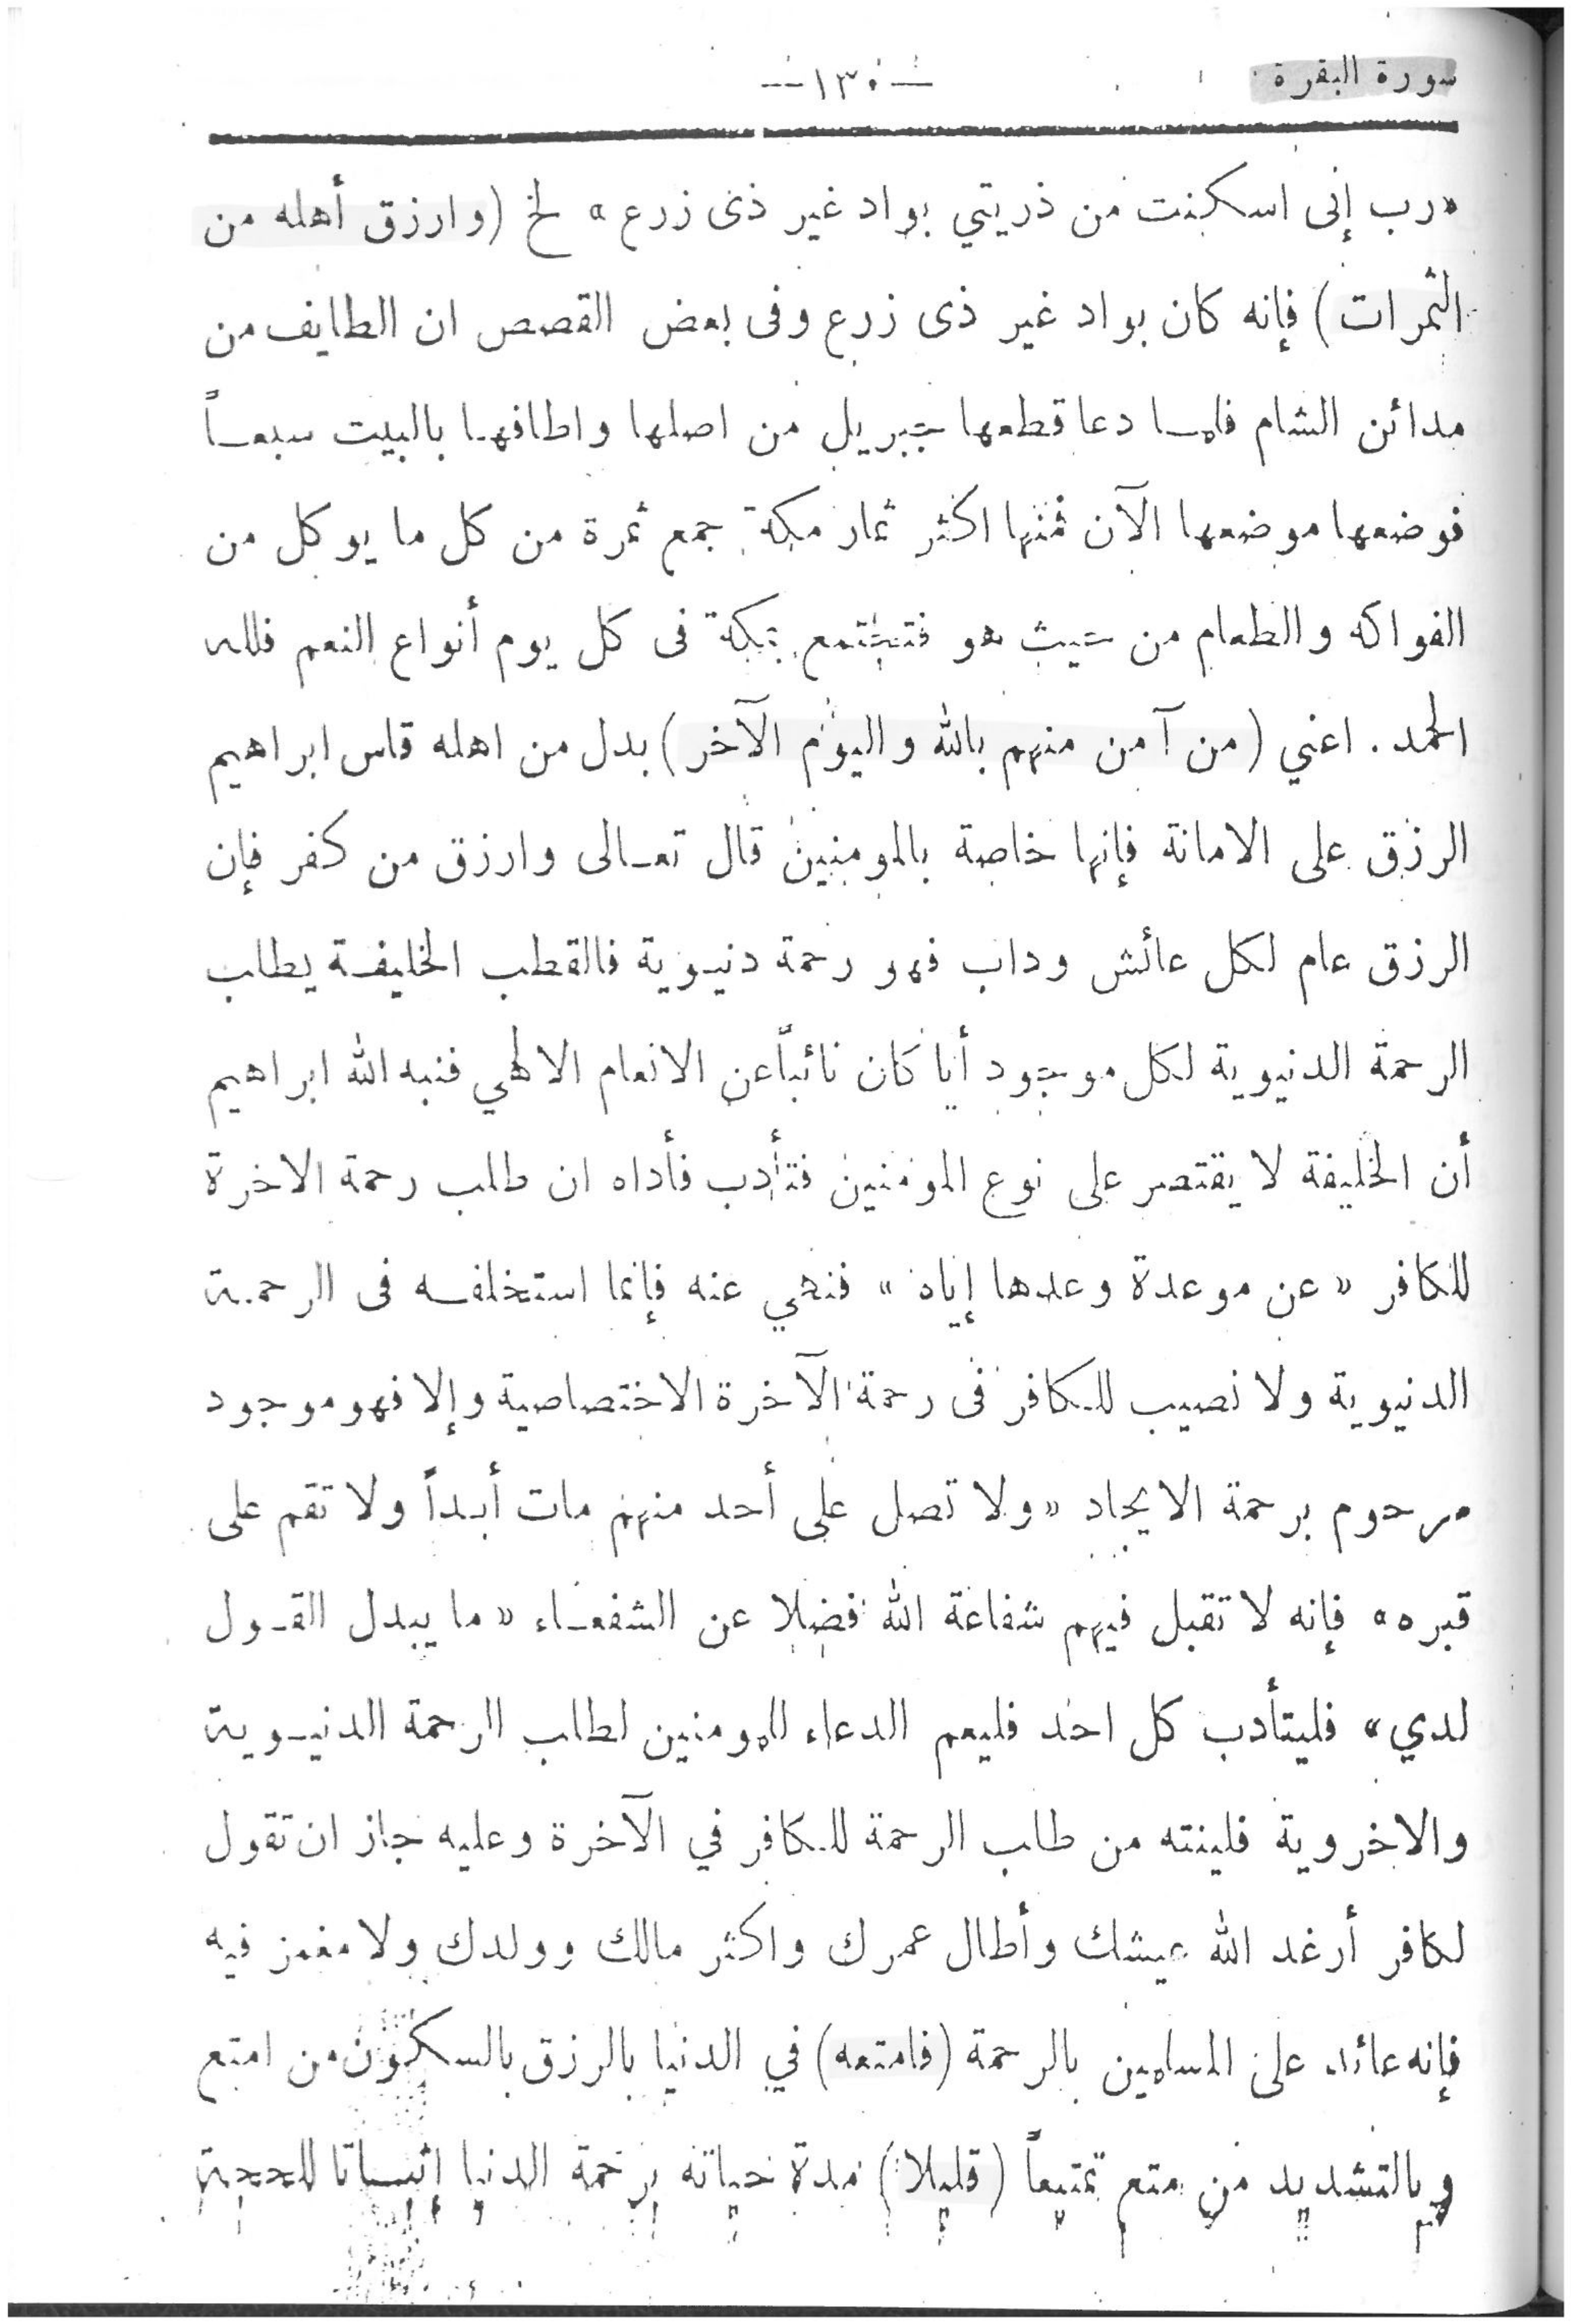 سورة البقرة
— ١٣٠ —
«رب إنى اسكنت من ذريتي بواد غير ذى زرع» لخ (وارزق أهله من
الثمرات) فإنه كان بواد غير ذى زرع وفى بعض القصص ان الطايف من
مدائن الشام فلمـا دعا قطعها جبريل من اصلها واطافهـا بالبيت سبعـاً
فوضعها موضعها الآن فمنها اكثر ثمار مكة جمع ثمرة من كل ما يوكل من
الفواكه والطعام من حيث هو فتجتمع بمكة فى كل يوم أنواع النعم فلله
الحمد . اعني (من آمن منهم بالله واليوم الآخر) بدل من اهله قاس ابراهيم
الرزق على الامانة فإنها خاصة بالمومنين قال تعـالى وارزق من كفر فإن
الرزق عام لكل عائش وداب فهو رحمة دنيـوية فالقطب الخليفـة يطلب
الرحمة الدنيوية لكل موجود أيا كان نائباً عن الانعام الالهي فنبه الله ابراهيم
أن الخليفة لا يقتصر على نوع المومنين فتأدب فأداه ان طلب رحمة الاخرة
للكافر «عن موعدة وعدها إياه» فنهي عنه فإنما استخلفـه فى الرحمـة
الدنيوية ولا نصيب للكافر فى رحمة الآخرة الاختصاصية وإلا فهو موجود
مرحوم برحمة الايجاد «ولا تصل على أحد منهم مات أبـداً ولا تقم على
قبره» فإنه لا تقبل فيهم شفاعة الله فضلا عن الشفعـاء «ما يبدل القـول
لدي» فليتأدب كل احد فليعم الدعاء للمومنين لطلب الرحمة الدنيـوية
والاخروية فلينته من طلب الرحمة للكافر في الآخرة وعليه جاز ان تقول
لكافر أرغد الله عيشك وأطال عمرك واكثر مالك وولدك ولا مغمز فيه
فإنه عائد على المسلمين بالرحمة (فامتعه) في الدنيا بالرزق بالسكون من امتع
وبالتشديد من متع تمتيعاً (قليلا) مدة حياته برحمة الدنيا إثبـاتا للحجة